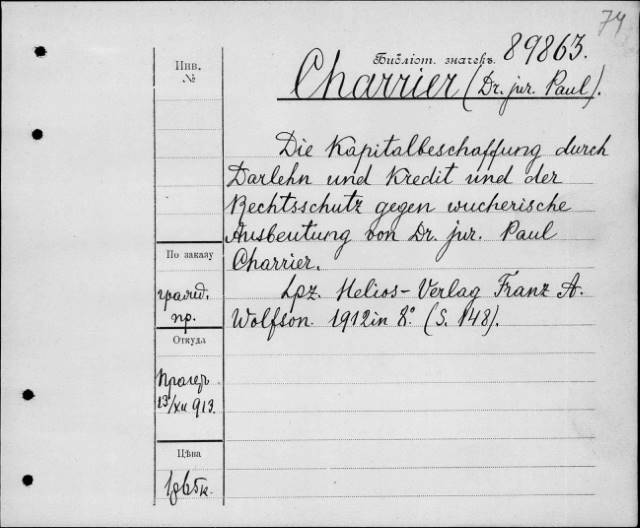 74
Библіот. значекъ 89863.
Инв.
№
Charrier (Dr. jur. Paul).
Die Kapitalbeschaffung durch
Darlehn und Kredit und der
Rechtsschutz gegen wucherische
Ausbeutung von Dr. jur. Paul
Charrier.
Lpz. Helios-Verlag Franz A.
Wolfson. 1912 in 8° (S. 148).
По заказу
гражд.
пр.
Откуда
13/XII 913.
Цѣна